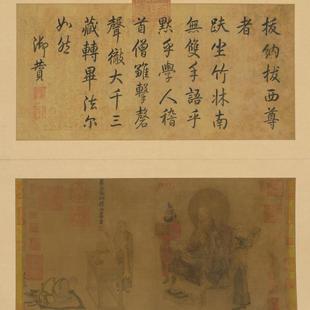 拔納拔西尊
者
趺坐竹牀南
無雙手語乎
黙乎學人稽
首僧雖擊磬
聲徹大千三
藏轉畢法尔
如然
御贊